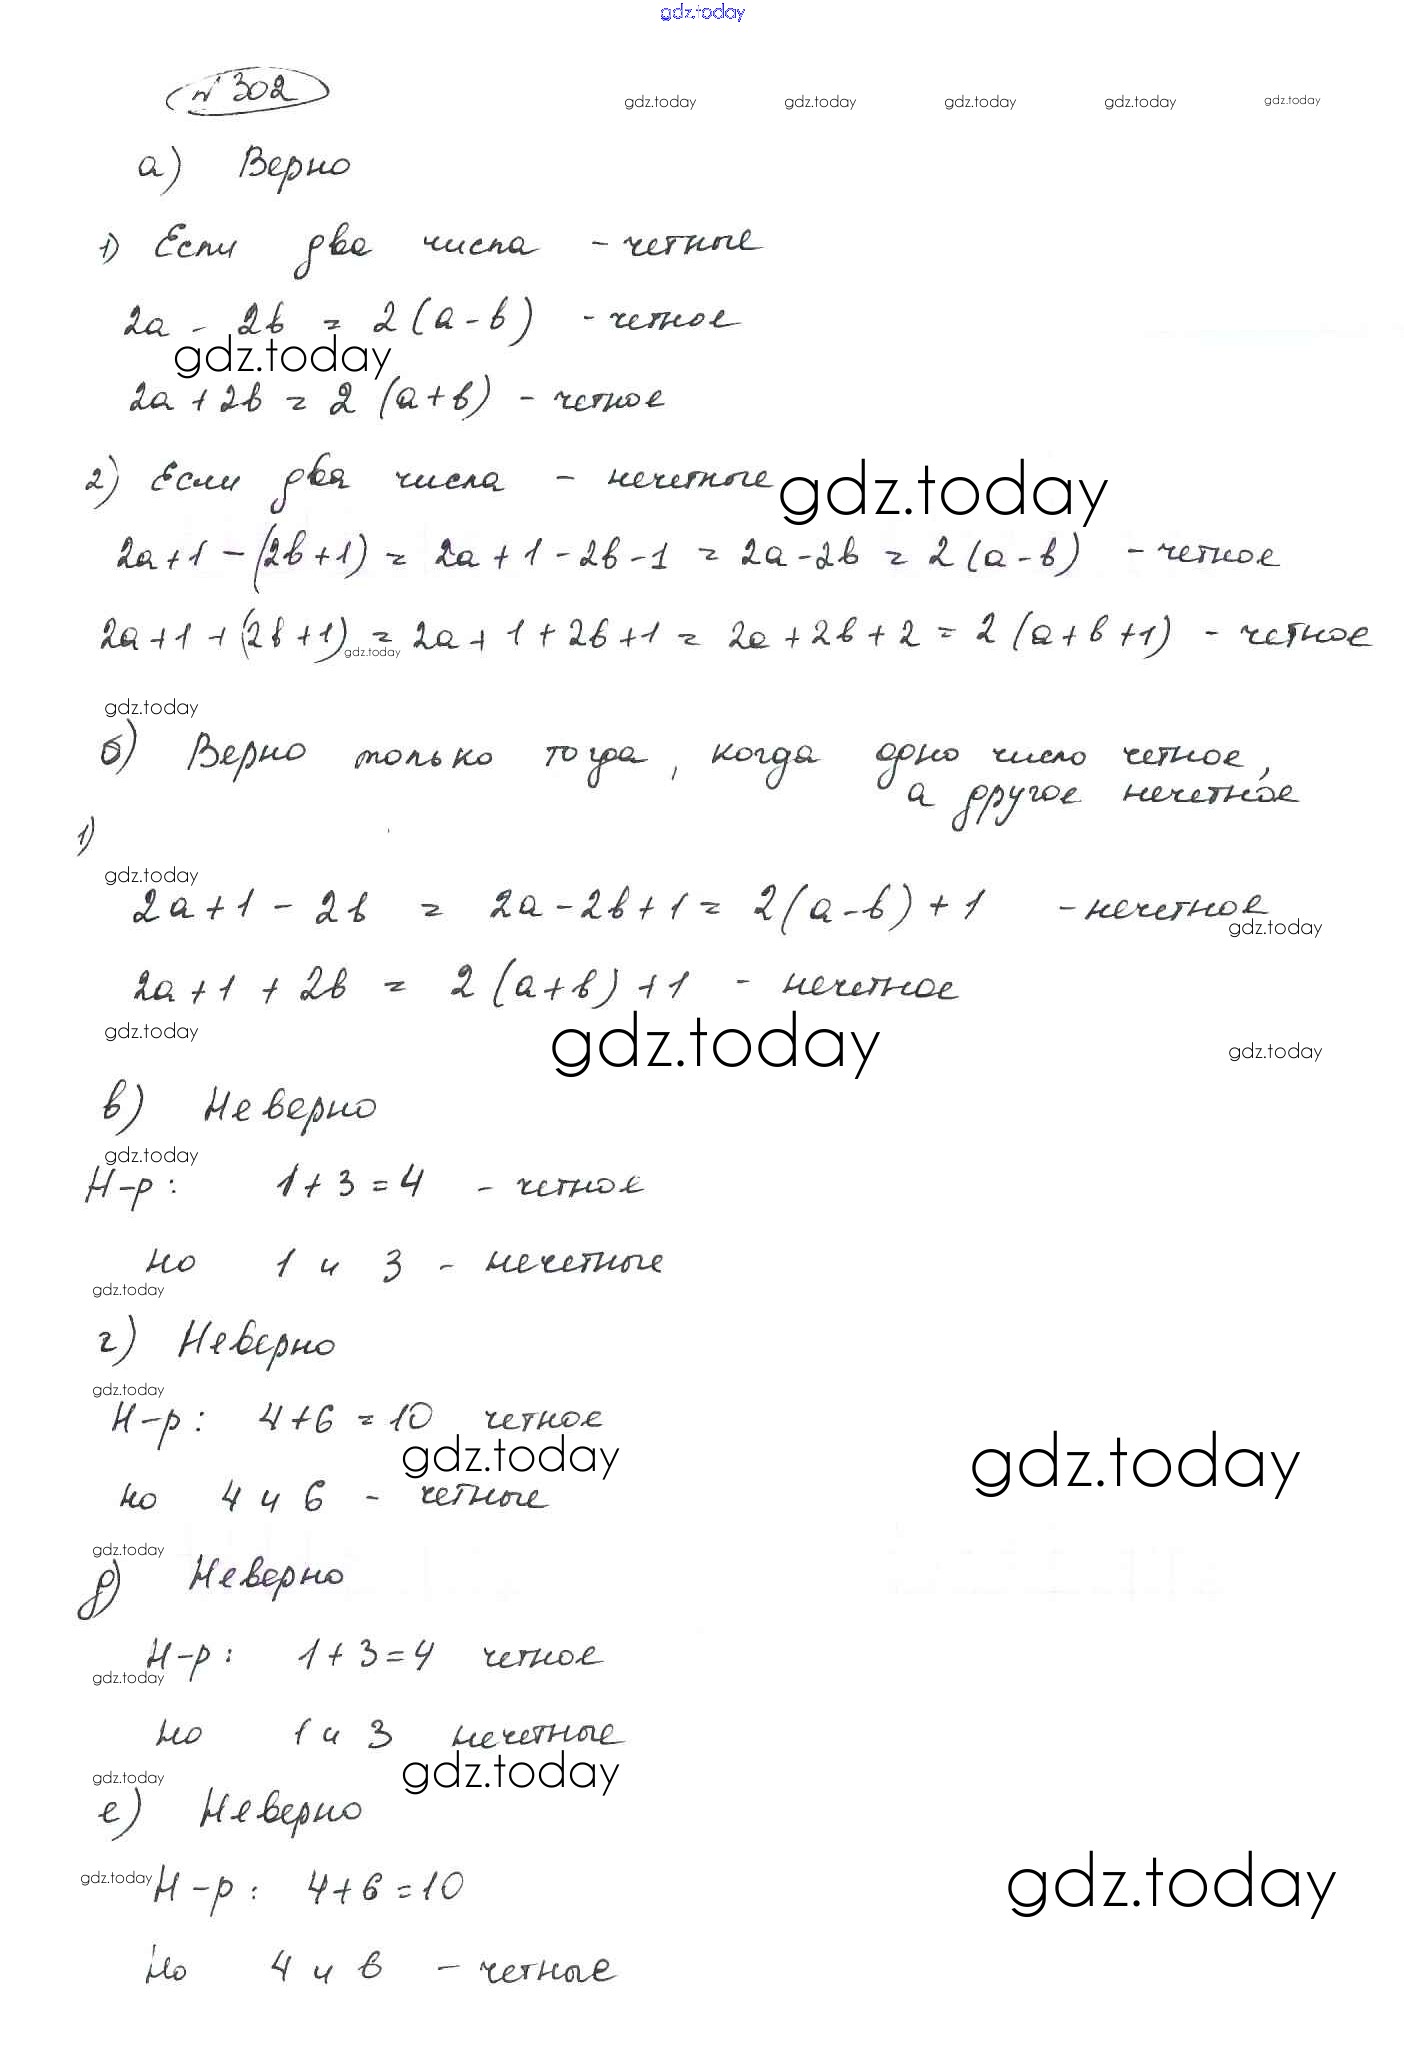 gdz.today
№ 302
gdz.today gdz.today gdz.today gdz.today gdz.today
а) Верно
1) Если два числа - четные
2а - 2в = 2(а-в) - четное
gdz.today
2а + 2в = 2 (а+в) - четное
2) Если два числа - нечетные
gdz.today
2а+1 - (2в+1) = 2а + 1 - 2в - 1 = 2а - 2в = 2(а-в) - четное
2а+1 + (2в+1) = 2а + 1 + 2в + 1 = 2а + 2в + 2 = 2 (а+в+1) - четное
gdz.today
gdz.today
б) Верно только тогда, когда одно число четное,
а другое нечетное
1)
gdz.today
2а+1 - 2в = 2а - 2в + 1 = 2(а-в) + 1 - нечетное
gdz.today
2а+1 + 2в = 2 (а+в) +1 - нечетное
gdz.today gdz.today gdz.today
в) Неверно
gdz.today
Н-р: 1 + 3 = 4 - четное
но 1 и 3 - нечетные
gdz.today
г) Неверно
gdz.today
Н-р: 4+6 = 10 четное
gdz.today gdz.today
но 4 и 6 - четные
gdz.today
д) Неверно
Н-р: 1 + 3 = 4 четное
gdz.today
но 1 и 3 нечетные
gdz.today gdz.today
е) Неверно
gdz.today
Н-р: 4+6 = 10
gdz.today
но 4 и 6 - четные